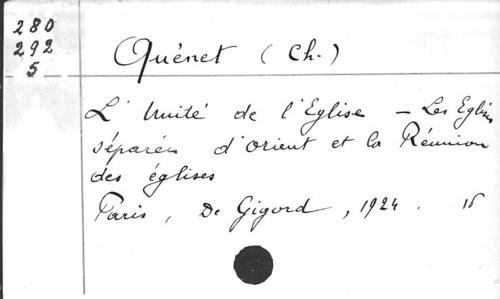 280
292
5
Quénet (Ch.)
L'Unité de l'Eglise – Les Eglises
séparées d'Orient et la Réunion
des églises
Paris, De Gigord, 1924. 16